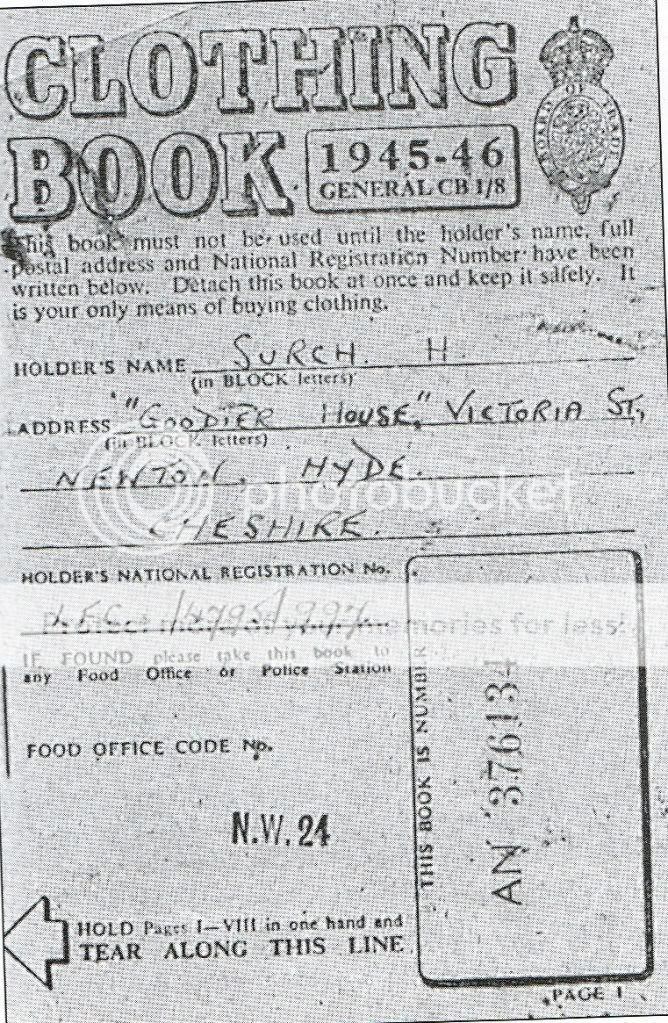 CLOTHING
BOOK
1945-46
GENERAL CB 1/8
BOARD OF TRADE
This book must not be used until the holder's name, full
postal address and National Registration Number have been
written below. Detach this book at once and keep it safely. It
is your only means of buying clothing.
HOLDER'S NAME SURCH. H.
(in BLOCK letters)
ADDRESS "GOODIER HOUSE," VICTORIA ST,
(in BLOCK letters)
NEWTON. HYDE.
CHESHIRE.
photobucket
HOLDER'S NATIONAL REGISTRATION No.
Protect more of your memories for less!
IF FOUND please take this book to
any Food Office or Police Station
FOOD OFFICE CODE No.
N.W. 24
THIS BOOK IS NUMBER
AN 376134
HOLD Pages I—VIII in one hand and
TEAR ALONG THIS LINE
PAGE I